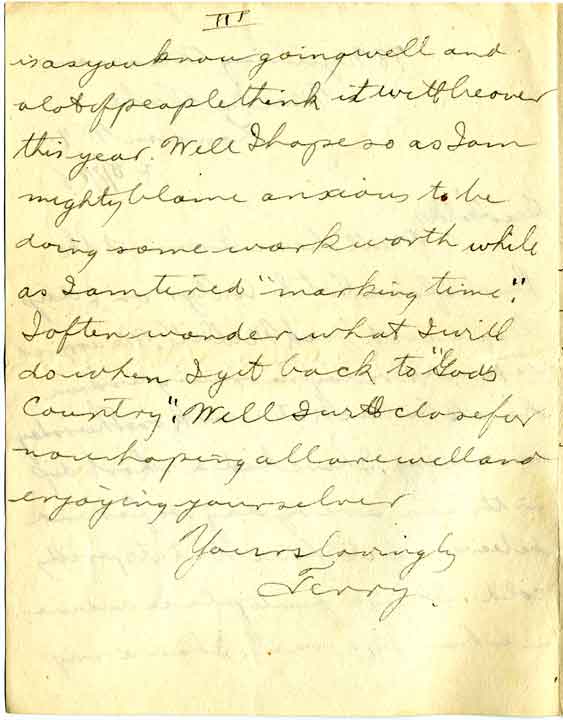 III
is as you know going well and
a lot of people think it will be over
this year. Well I hope so as I am
mighty blame anxious to be
doing some work worth while
as I am tired "marking time".
I often wonder what I will
do when I get back to "Gods
Country". Well I will close for
now hoping all are well and
enjoying yourselves
Yours lovingly
Jerry.